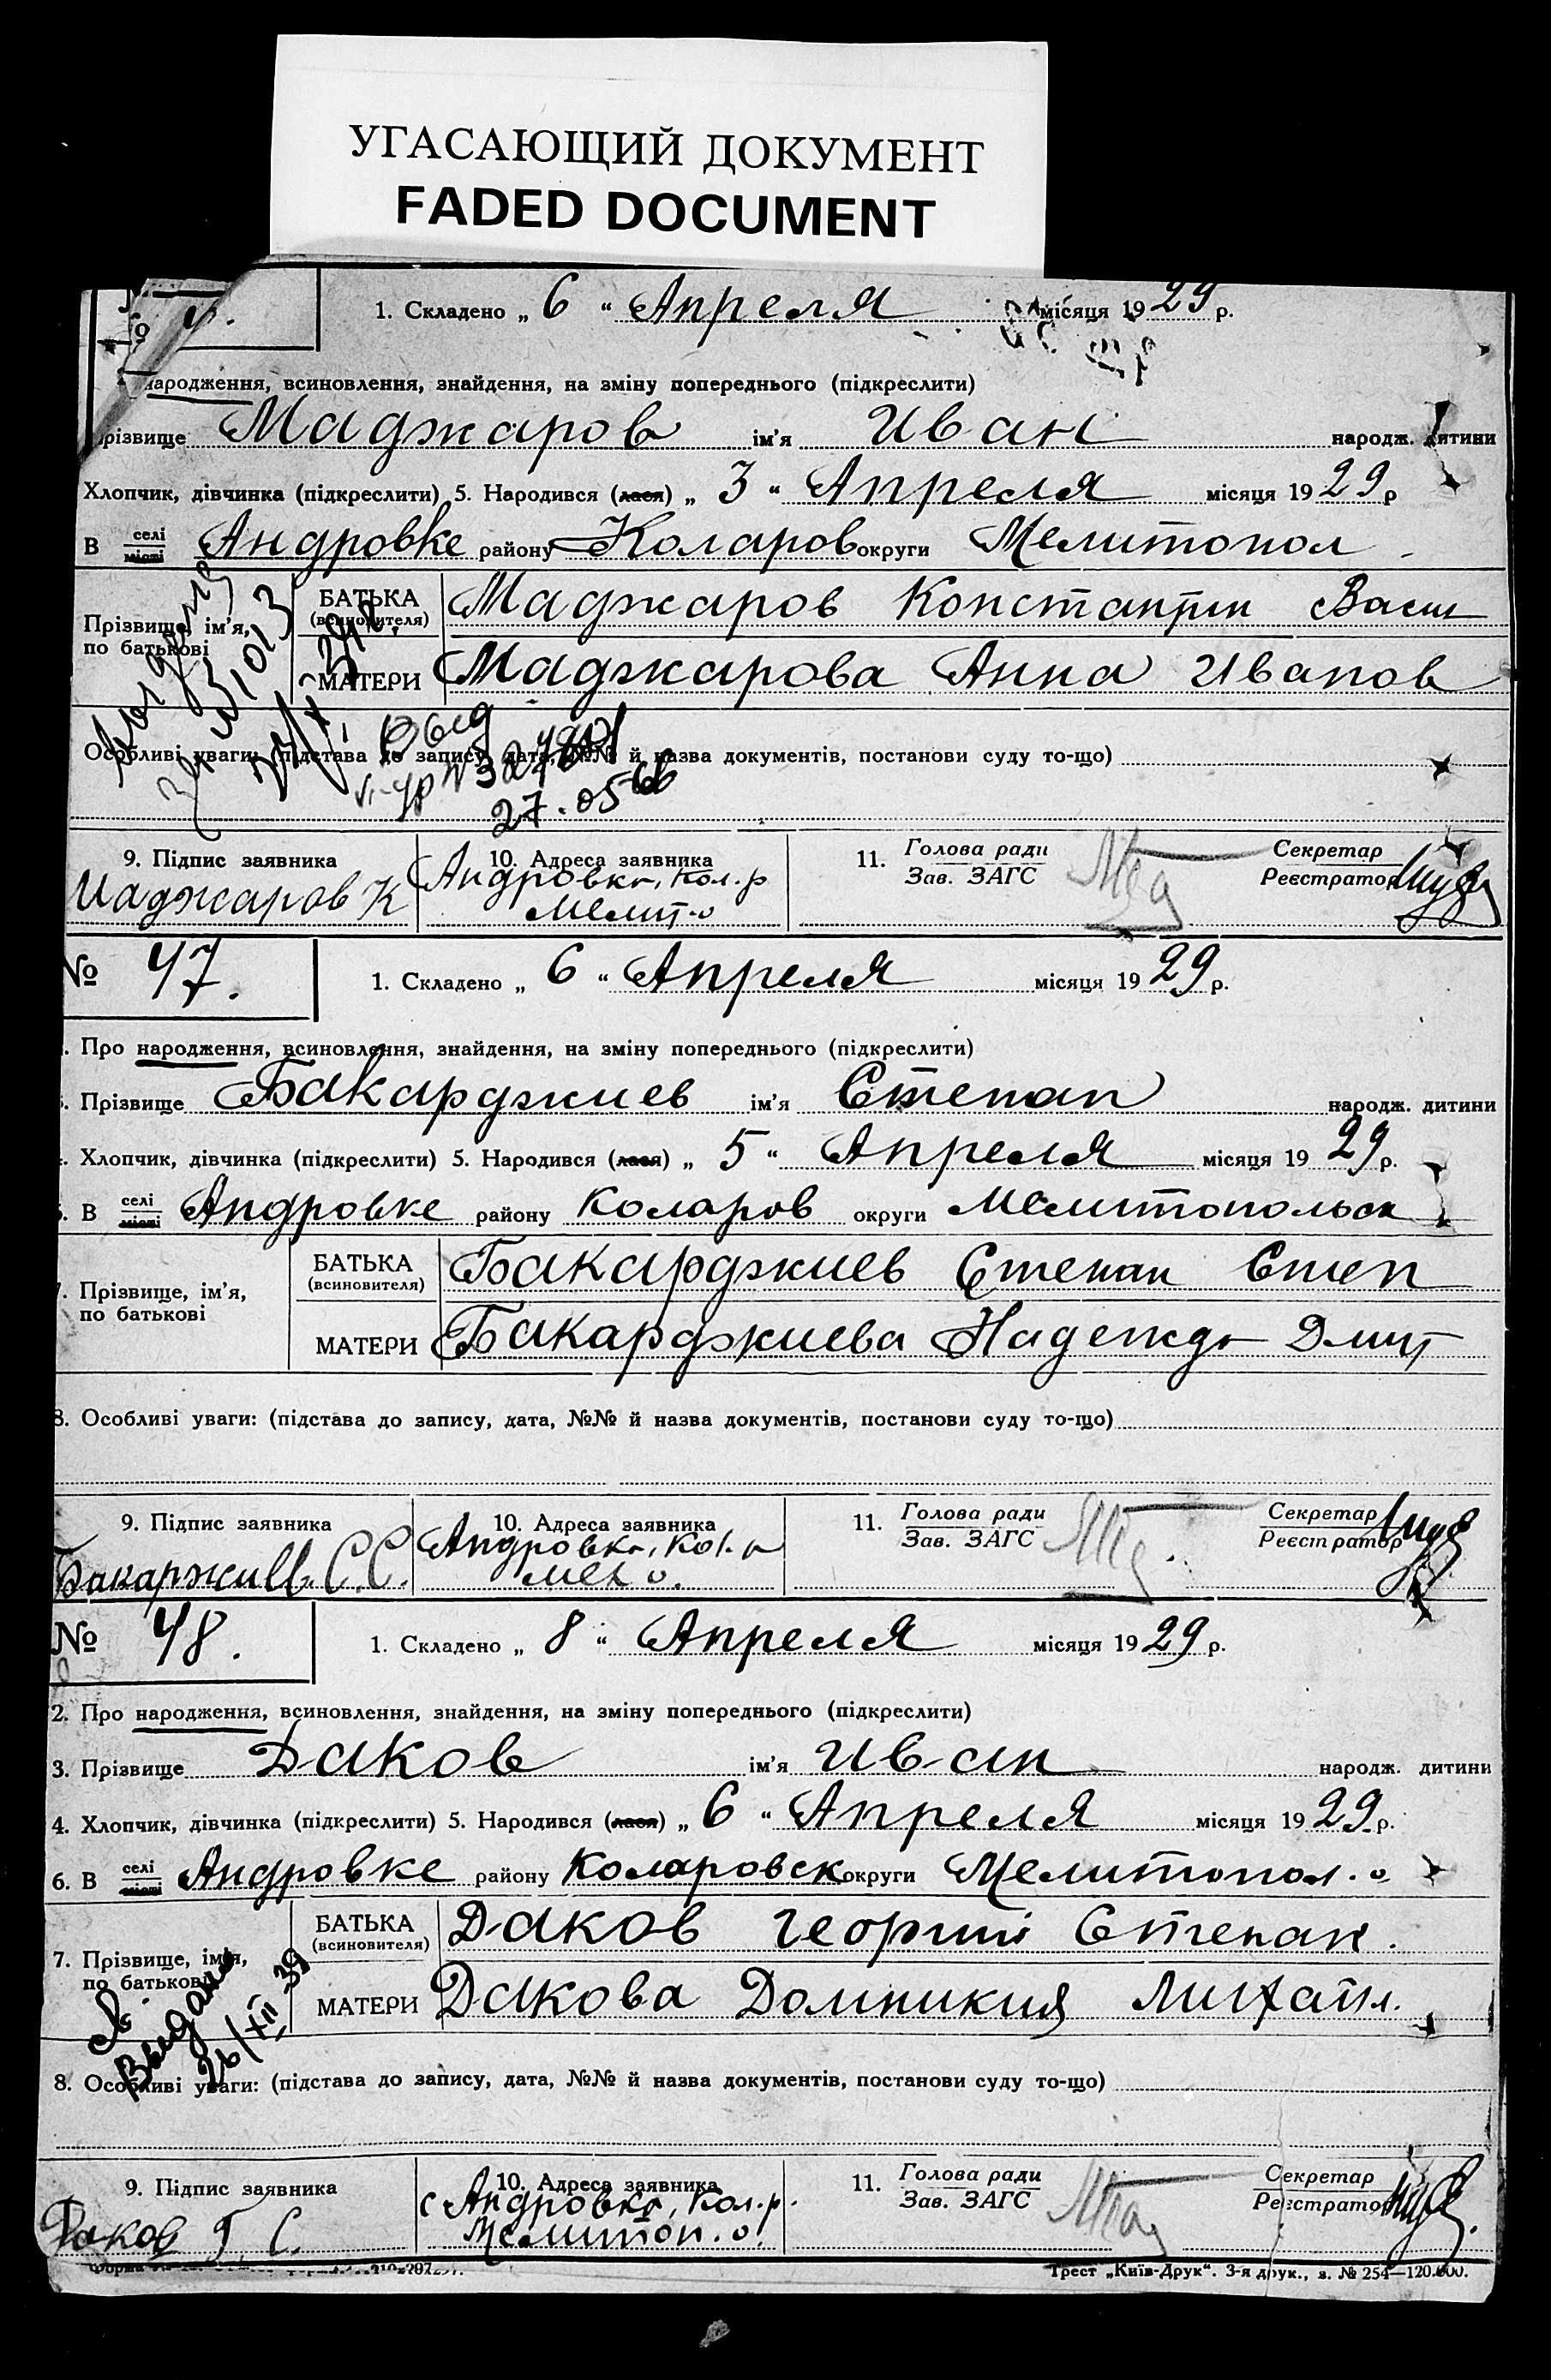 УГАСАЮЩИЙ ДОКУМЕНТ
FADED DOCUMENT
1. Складено „ 6 “ Апреля місяця 1929 р.
народження, всиновлення, знайдення, на зміну попереднього (підкреслити)
прізвище Маджаров ім’я Иван народж. дитини
Хлопчик, дівчинка (підкреслити) 5. Народився (лася) „ 3 “ Апреля місяця 1929 р
В селі місті Андровке району Коларов округи Мелитопол
Прізвище, ім’я, по батькові
БАТЬКА (всиновителя) Маджаров Константин Васил
МАТЕРИ Маджарова Анна Иванов
Особливі уваги: (підстава до запису, дата, №№ й назва документів, постанови суду то-що)
27.05
9. Підпис заявника Маджаров К
10. Адреса заявника Андровка, Кол. р
Мелит. о
11. Голова ради Зав. ЗАГС
Секретар Реєстратор
№ 47.
1. Складено „ 6 “ Апреля місяця 1929 р.
. Про народження, всиновлення, знайдення, на зміну попереднього (підкреслити)
3. Прізвище Бакарджиев ім’я Степан народж. дитини
. Хлопчик, дівчинка (підкреслити) 5. Народився (лася) „ 5 “ Апреля місяця 1929 р.
. В селі місті Андровке району Коларов округи Мелитопольск
7. Прізвище, ім’я, по батькові
БАТЬКА (всиновителя) Бакарджиев Степан Степ
МАТЕРИ Бакарджиева Надежда Дмит
8. Особливі уваги: (підстава до запису, дата, №№ й назва документів, постанови суду то-що)
9. Підпис заявника Бакаржиев С.С.
10. Адреса заявника Андровка, Кол. р
Мел о.
11. Голова ради Зав. ЗАГС
Секретар Реєстратор
№ 48.
1. Складено „ 8 “ Апреля місяця 1929 р.
2. Про народження, всиновлення, знайдення, на зміну попереднього (підкреслити)
3. Прізвище Даков ім’я Иван народж. дитини
4. Хлопчик, дівчинка (підкреслити) 5. Народився (лася) „ 6 “ Апреля місяця 1929 р.
6. В селі місті Андровке району Коларовск округи Мелитопол. о
7. Прізвище, ім’я, по батькові
БАТЬКА (всиновителя) Даков Георгий Степан.
МАТЕРИ Дакова Домникия Михайл.
Выдано
26/XII 39
8. Особливі уваги: (підстава до запису, дата, №№ й назва документів, постанови суду то-що)
9. Підпис заявника Даков Г. С.
10. Адреса заявника с Андровка, Кол. р.
Мелитоп. о.
11. Голова ради Зав. ЗАГС
Секретар Реєстратор
Форма
Трест „Київ-Друк“. 3-я друк., з. № 254—120.000.